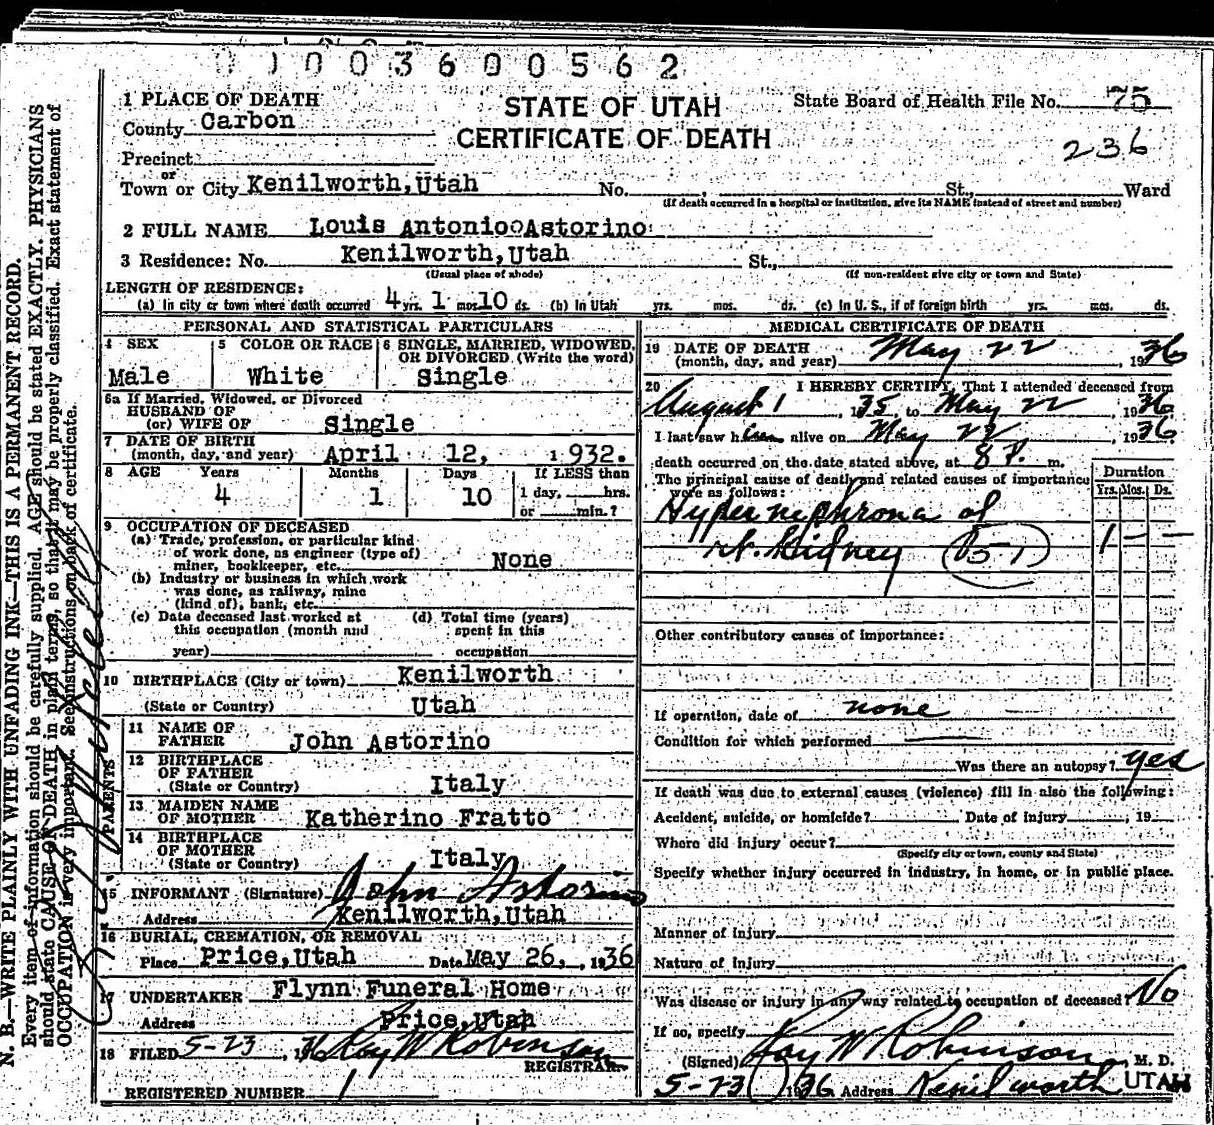 003600562
1 PLACE OF DEATH
County Carbon
Precinct
or
Town or City Kenilworth, Utah No. , St., Ward
(If death occurred in a hospital or institution, give its NAME instead of street and number)
STATE OF UTAH
CERTIFICATE OF DEATH
State Board of Health File No. 75
236
2 FULL NAME Louis Antonio Astorino
3 Residence: No. Kenilworth, Utah St.,
(Usual place of abode) (If non-resident give city or town and State)
LENGTH OF RESIDENCE:
(a) In city or town where death occurred 4 yrs. 1 mos. 10 ds. (b) In Utah yrs. mos. ds. (c) In U. S., if of foreign birth yrs. mos. ds.
PERSONAL AND STATISTICAL PARTICULARS
4 SEX
Male
5 COLOR OR RACE
White
6 SINGLE, MARRIED, WIDOWED, OR DIVORCED (Write the word)
Single
6a If Married, Widowed, or Divorced
HUSBAND OF
(or) WIFE OF Single
7 DATE OF BIRTH
(month, day, and year) April 12, 1932.
8 AGE Years Months Days If LESS than
4 1 10 1 day, hrs.
or min.?
9 OCCUPATION OF DECEASED
(a) Trade, profession, or particular kind
of work done, as engineer (type of)
miner, bookkeeper, etc. None
(b) Industry or business in which work
was done, as railway, mine
(kind of), bank, etc.
(c) Date deceased last worked at
this occupation (month and
year)
(d) Total time (years)
spent in this
occupation
10 BIRTHPLACE (City or town) Kenilworth
(State or Country) Utah
PARENTS
11 NAME OF
FATHER John Astorino
12 BIRTHPLACE
OF FATHER
(State or Country) Italy
13 MAIDEN NAME
OF MOTHER Katherino Fratto
14 BIRTHPLACE
OF MOTHER
(State or Country) Italy
15 INFORMANT (Signature) John Astorino
Address Kenilworth, Utah
16 BURIAL, CREMATION, OR REMOVAL
Place Price, Utah Date May 26, 1936
17 UNDERTAKER Flynn Funeral Home
Address Price, Utah
18 FILED 5-23, 1936 Roy W Robinson
REGISTRAR
REGISTERED NUMBER 1
MEDICAL CERTIFICATE OF DEATH
19 DATE OF DEATH
(month, day, and year) May 22, 1936
20 I HEREBY CERTIFY, That I attended deceased from
August 1, 1935, to May 22, 1936
I last saw him alive on May 22, 1936
death occurred on the date stated above, at 8 P. m.
The principal cause of death and related causes of importance
were as follows:
Duration
Yrs. Mos. Ds.
Hypernephroma of
rt. Kidney 1 - -
Other contributory causes of importance:
If operation, date of none
Condition for which performed
Was there an autopsy? yes
If death was due to external causes (violence) fill in also the following:
Accident, suicide, or homicide? Date of Injury , 19
Where did injury occur?
(Specify city or town, county and State)
Specify whether injury occurred in industry, in home, or in public place.
Manner of injury
Nature of Injury
Was disease or injury in any way related to occupation of deceased? No
If so, specify
(Signed) Roy W Robinson, M. D.
5-23 1936 Address Kenilworth UTAH
N. B.—WRITE PLAINLY WITH UNFADING INK—THIS IS A PERMANENT RECORD.
Every item of information should be carefully supplied. AGE should be stated EXACTLY. PHYSICIANS
should state CAUSE OF DEATH in plain terms, so that it may be properly classified. Exact statement of
OCCUPATION is very important. See instructions on back of certificate.